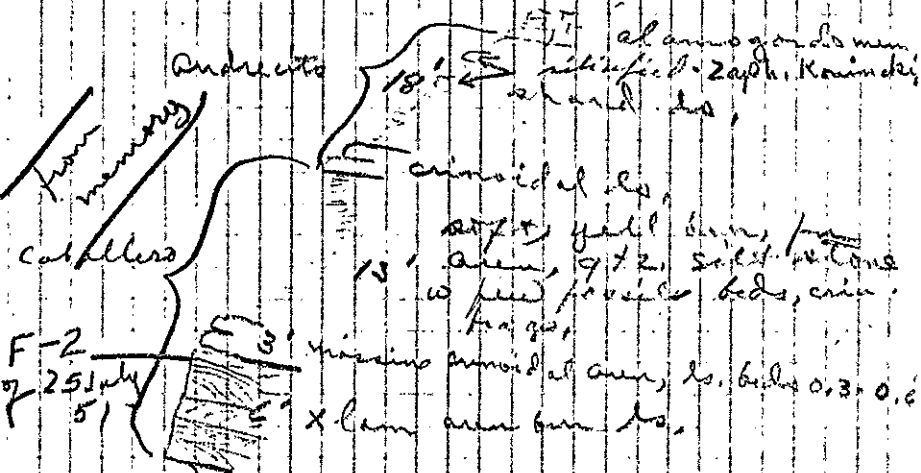 alamogordo mem
Andrecito
18' silicified Zaph.
and ls.
from
memory
crinoidal ls.
Caballero
soft, yell brn,
13' aren, qtz. siltstone
w few fossils beds, crin.
frags,
F-2
of 25 July
51
massive crinoidal aren, ls. beds 0.3-0.6
6' x lam aren brn ls.